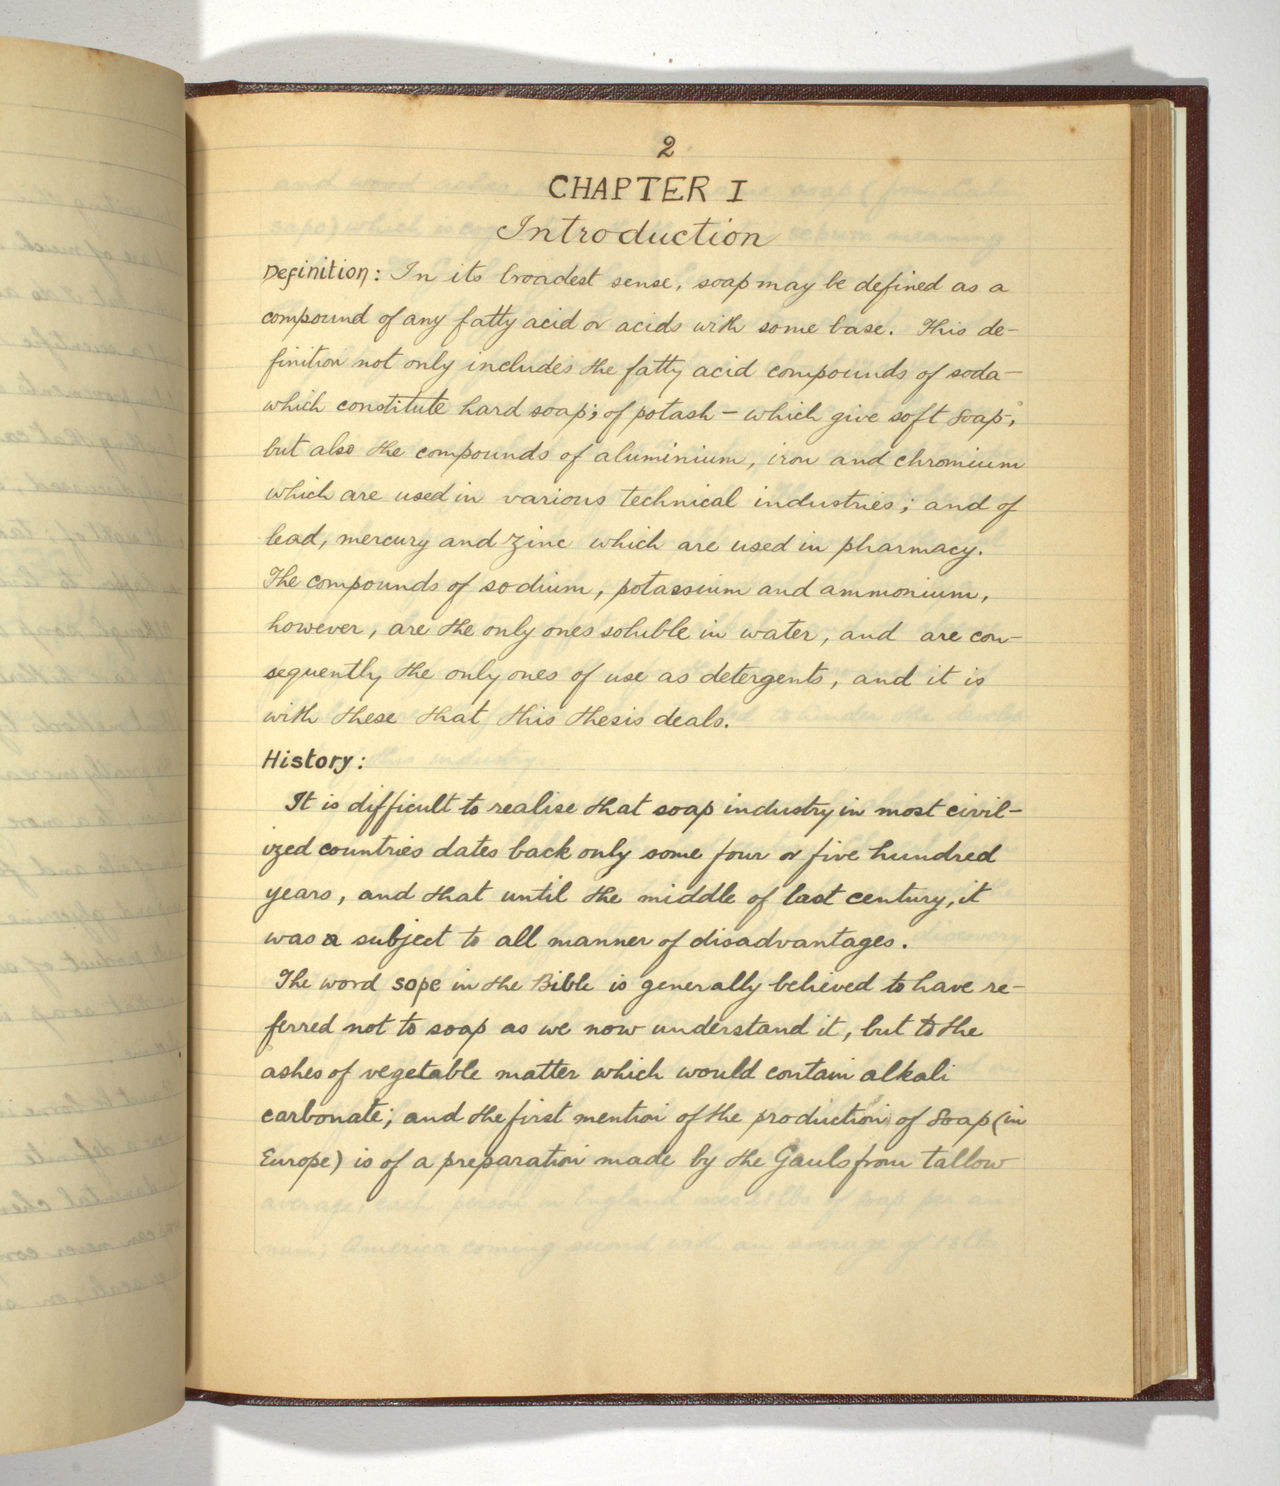 2
CHAPTER I
Introduction
Definition: In its broadest sense, soap may be defined as a
compound of any fatty acid or acids with some base. This de-
finition not only includes the fatty acid compounds of soda—
which constitute hard soap; of potash — which give soft soap;
but also the compounds of aluminium, iron and chromium
which are used in various technical industries; and of
lead, mercury and zinc which are used in pharmacy.
The compounds of sodium, potassium and ammonium,
however, are the only ones soluble in water, and are con-
sequently the only ones of use as detergents, and it is
with these that this thesis deals.
History:
It is difficult to realise that soap industry in most civil-
ized countries dates back only some four or five hundred
years, and that until the middle of last century, it
was a subject to all manner of disadvantages.
The word sope in the Bible is generally believed to have re-
ferred not to soap as we now understand it, but to the
ashes of vegetable matter which would contain alkali
carbonate; and the first mention of the production of soap (in
Europe) is of a preparation made by the Gauls from tallow